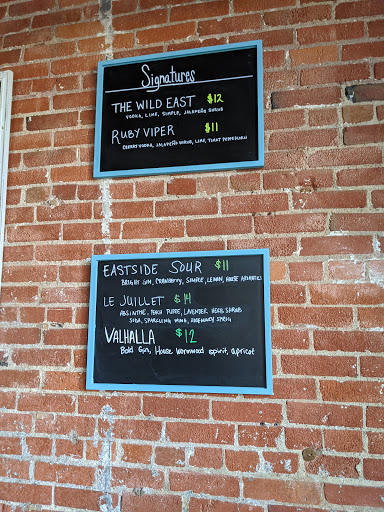 Signatures
THE WILD EAST $12
VODKA, LIME, SIMPLE, JALAPEÑO SHRUB
RUBY VIPER $11
CHERRY VODKA, JALAPEÑO SHRUB, LIME,
EASTSIDE SOUR $11
BRIGHT GIN, CRANBERRY, SIMPLE, LEMON, HOUSE AROMATICS
LE JUILLET $14
ABSINTHE, PEACH PUREE, LAVENDER HERB SHRUB
SODA, SPARKLING WINE, ROSEMARY SPRIG
VALHALLA $12
Bold Gin, House Wormwood spirit, apricot